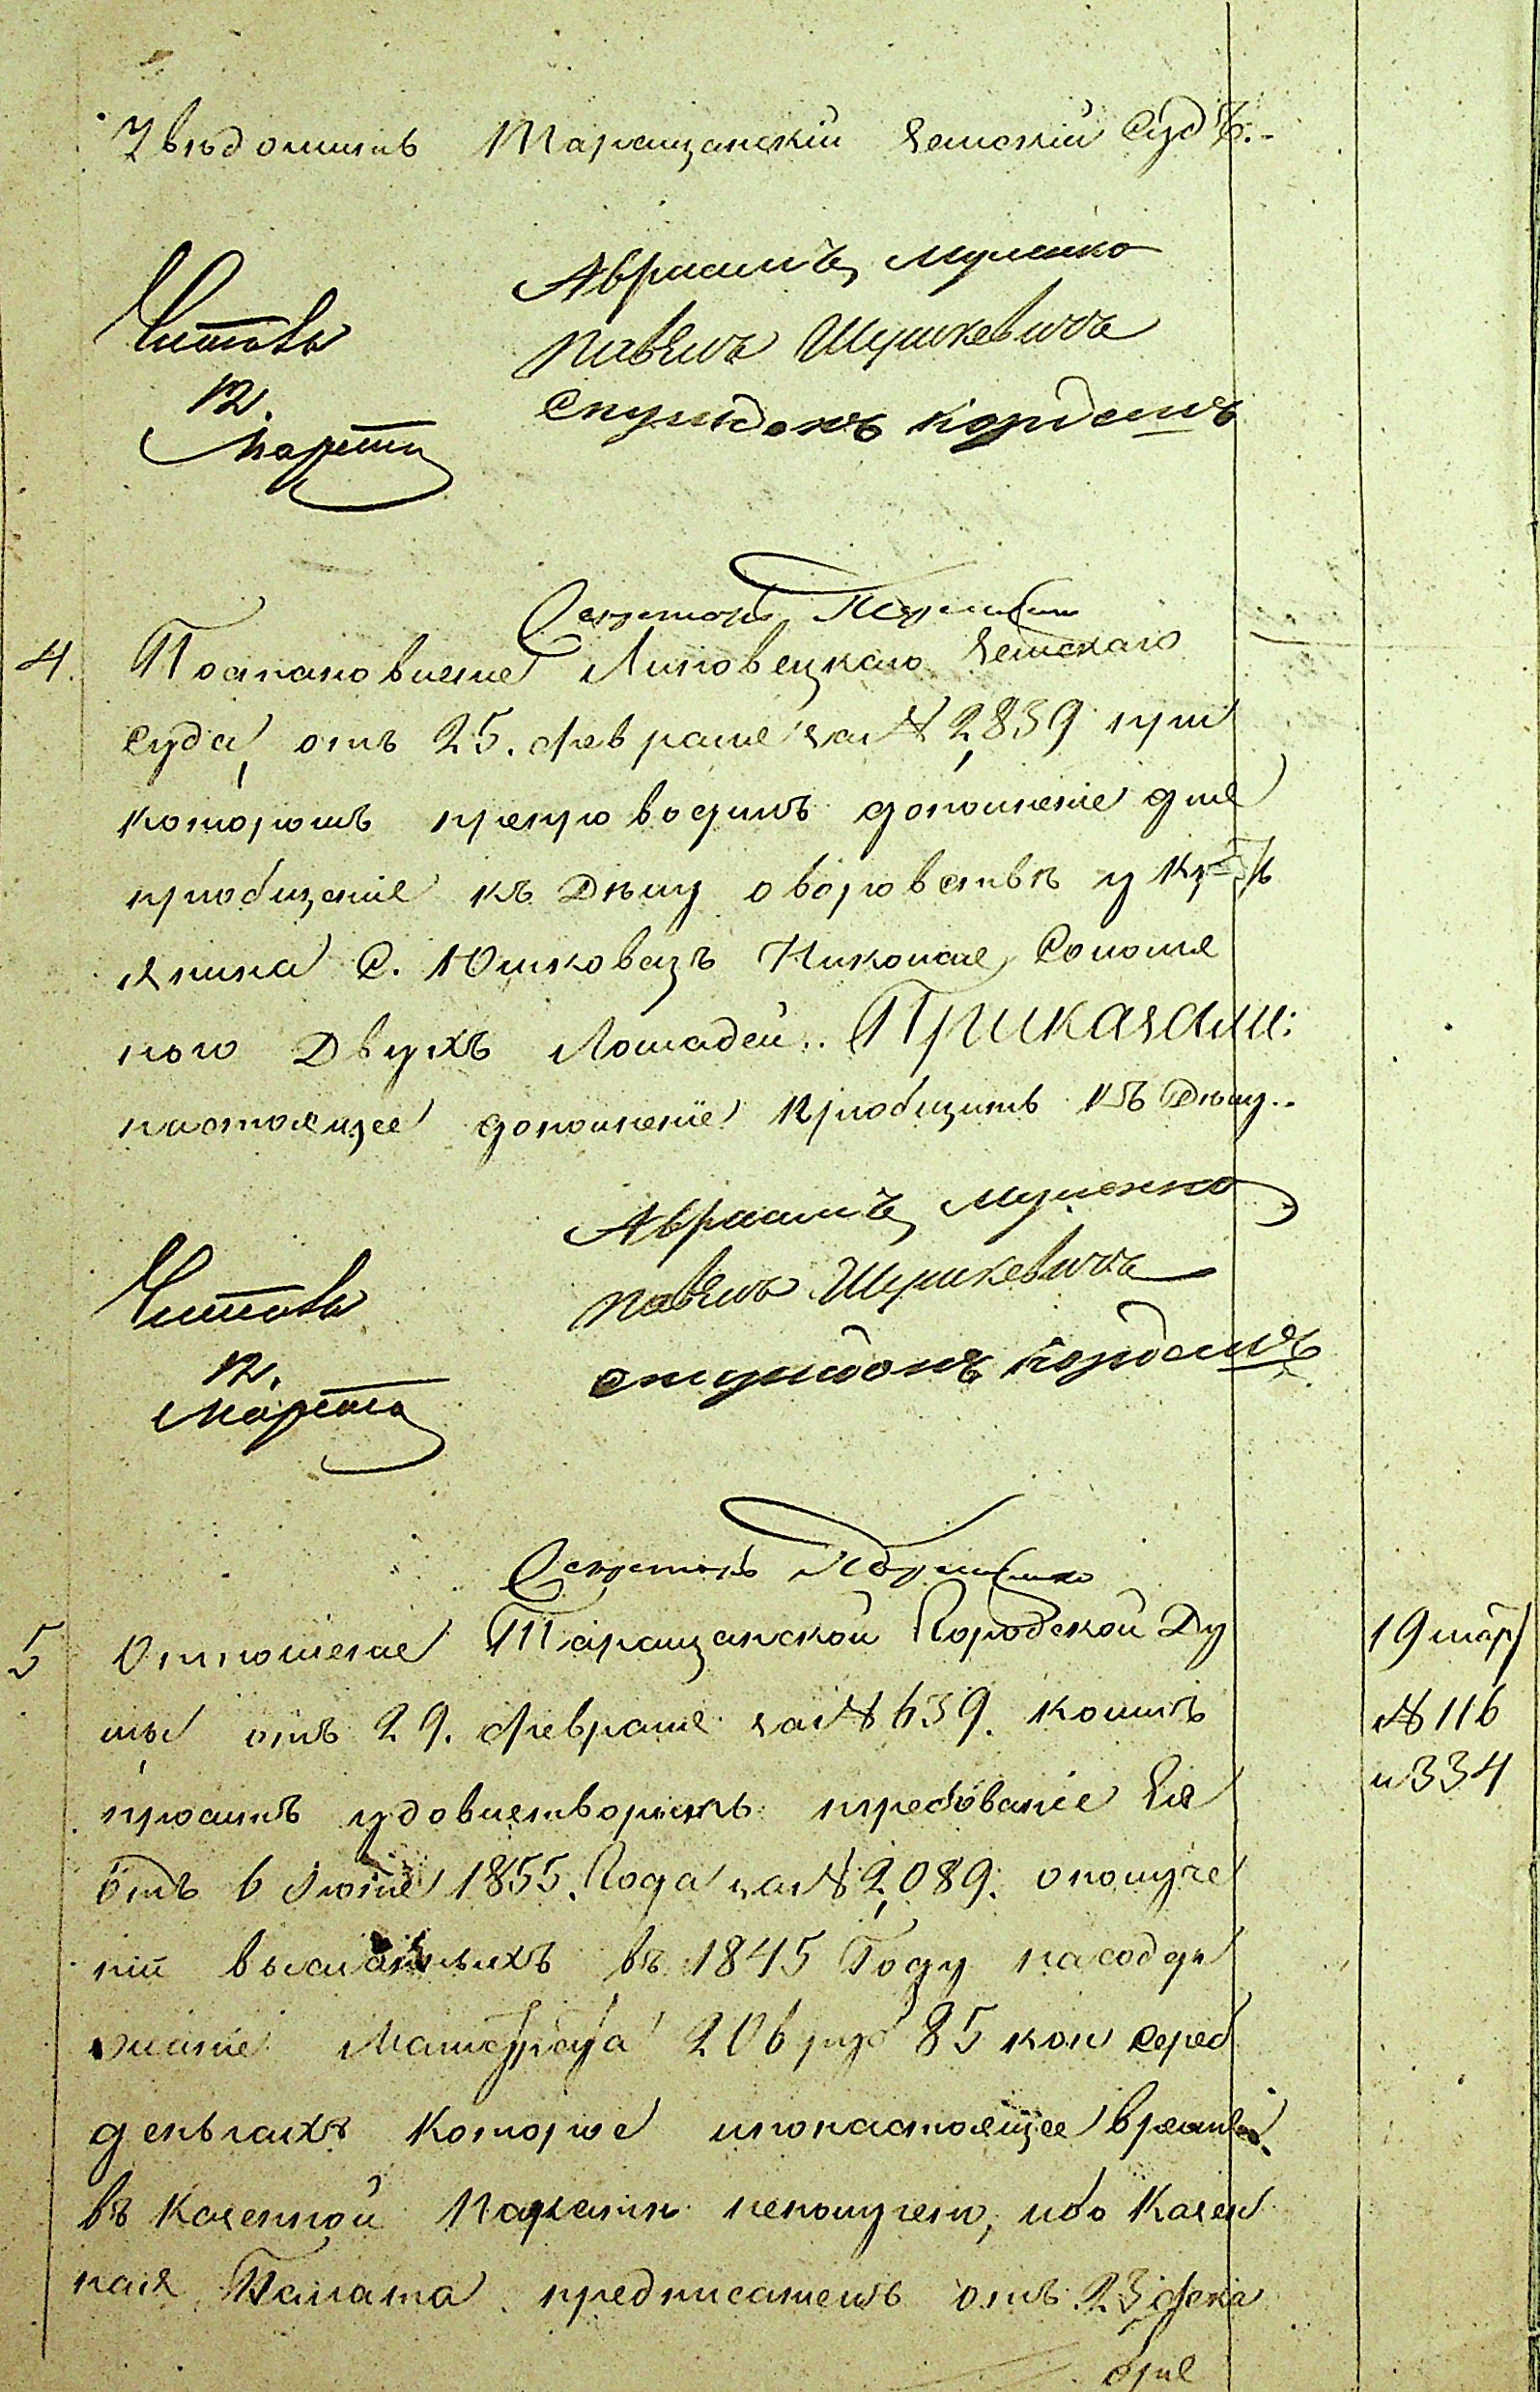 Увѣдомить Таращанскій Земскій Судъ.-
Авраамъ Муленко
Читовъ Павелъ Шушкевичъ
12.
Марта
Секретарь
4. Постановленіе Липовецкаго Земскаго
Суда, отъ 25. февраля за № 2,839 при
которомъ препроводитъ дополненіе для
пріобщенія къ Дѣлу о воровствѣ у Крѣ
янина С. Юшковецъ Николая Соломя
ного Двухъ Лошадей.. Приказали:
настоящее дополненіе Пріобщить къ Дѣлу..
Авраамъ Муленко
Читовъ Павелъ Шушкевичъ
12.
Марта
Секретарь
5 Отношеніе Таращанской Городской Ду
мы отъ 29. февраля за № 639. коимъ
проситъ удовлетворить требованіе Ея
отъ 6 Іюля 1855. Года за № 2,089. о получе
ніи высланныхъ въ 1845 Году на содер
жаніе Магистрата 206 руб 85 коп Сереб
деньгахъ которые и по настоящее время
въ Казенной Палатѣ неполучено, ибо Казен
ная Палата предписаніемъ отъ 23 Дека
бря
19 мар
№ 116
и 334